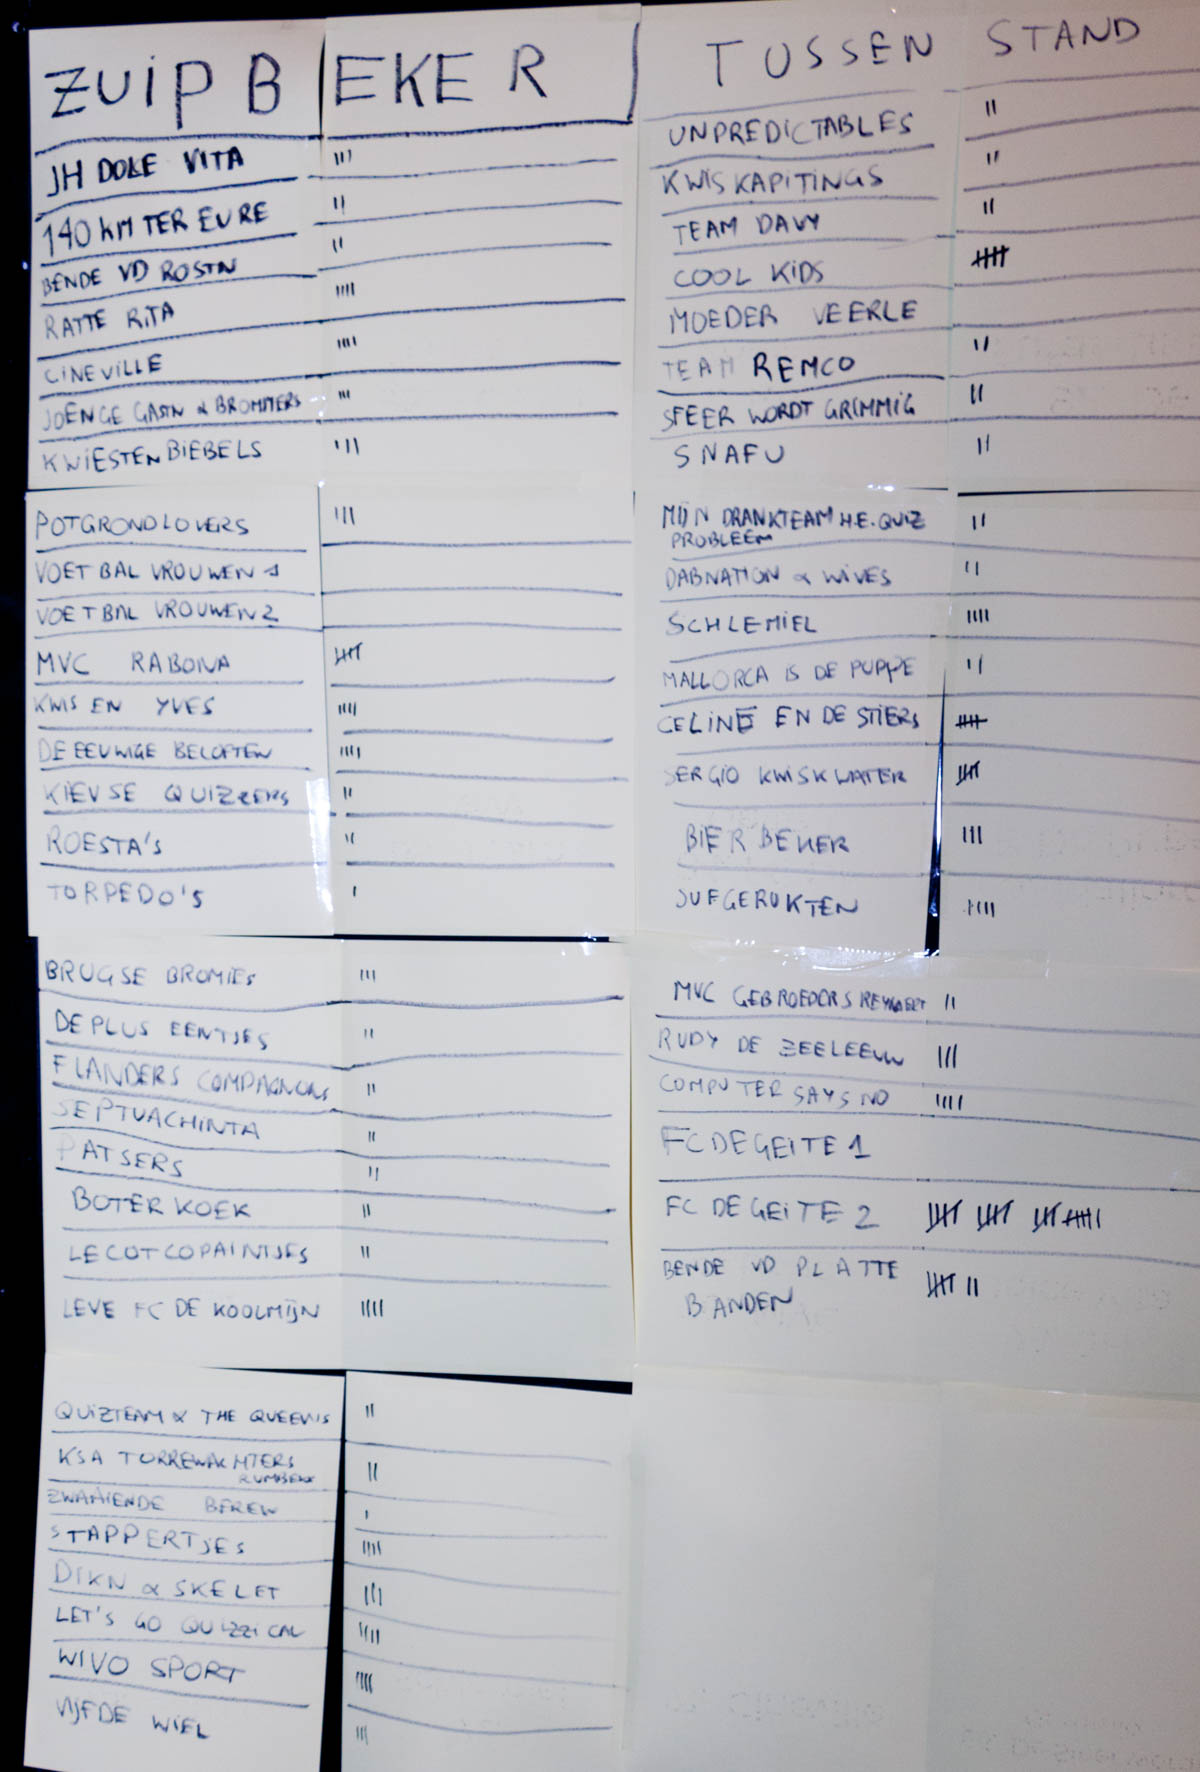 ZUIPBEKER
JH DOLE VITA III
140 KM TER EURE II
BENDE VD ROSTN II
RATTE RITA IIII
CINEVILLE IIII
JOENGE GASTN & BROMMERS III
KWIESTENBIEBELS III
POTGRONDLOVERS III
VOETBAL VROUWEN 1
VOETBAL VROUWEN 2
MVC RABONA
KWIS EN YVES IIII
DE EEUWIGE BELOFTEN IIII
KIEVSE QUIZZERS II
ROESTA'S II
TORPEDO'S I
BRUGSE BROMIES III
DE PLUS EENTJES II
FLANDERS COMPAGNONS II
SEPTUACHINTA II
PATSERS II
BOTERKOEK II
LECOTCOPAINTJES II
LEVE FC DE KOOLMIJN IIII
QUIZTEAM & THE QUEENS II
KSA TORREWACHTERS II
RUMBEKE
ZWAAIENDE BEREN I
STAPPERTJES IIII
DIKN & SKELET III
LET'S GO QUIZZICAL IIII
WIVO SPORT IIII
VIJFDE WIEL III
TUSSENSTAND
UNPREDICTABLES II
KWISKAPITINGS II
TEAM DAVY II
COOL KIDS
MOEDER VEERLE
TEAM REMCO II
SFEER WORDT GRIMMIG II
SNAFU II
MIJN DRANKTEAM H.E. QUIZ II
PROBLEEM
DABNATION & WIVES II
SCHLEMIEL IIII
MALLORCA IS DE PUPPE II
CELINE EN DE STIERS
SERGIO KWISKWATER
BIERBEKER III
JUFGERUKTEN IIII
MVC GEBROEDERS REYNAERT II
RUDY DE ZEELEEUW III
COMPUTER SAYS NO IIII
FC DE GEITE 1
FC DE GEITE 2
BENDE VD PLATTE
BANDEN